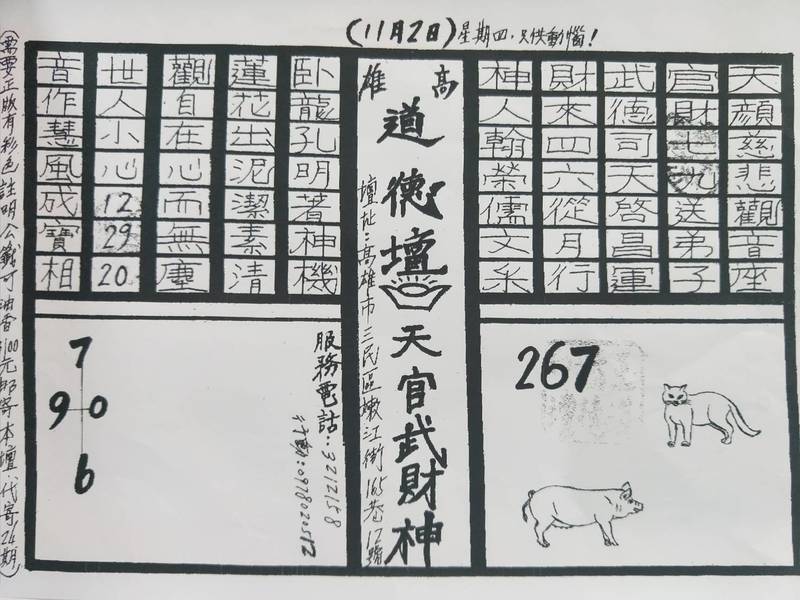 (11月2日)星期四.只供動惱!
天顏慈悲觀音座
官財七氿送弟子
武德司天啓昌運
財來四六從月行
神人翰榮儒文采
高雄
道德壇
天官武財神
壇址:高雄市三民區嫩江街165巷12號
臥龍孔明著神機
蓮花出泥潔素清
觀自在心而無塵
世人小心12 29 20
音作慧風成寶相
267
服務電話:3212158
行動:0978020512
7
9 0
6
(需要正版有彩色註明公鐵可油香100元郵寄本壇代寄24期)